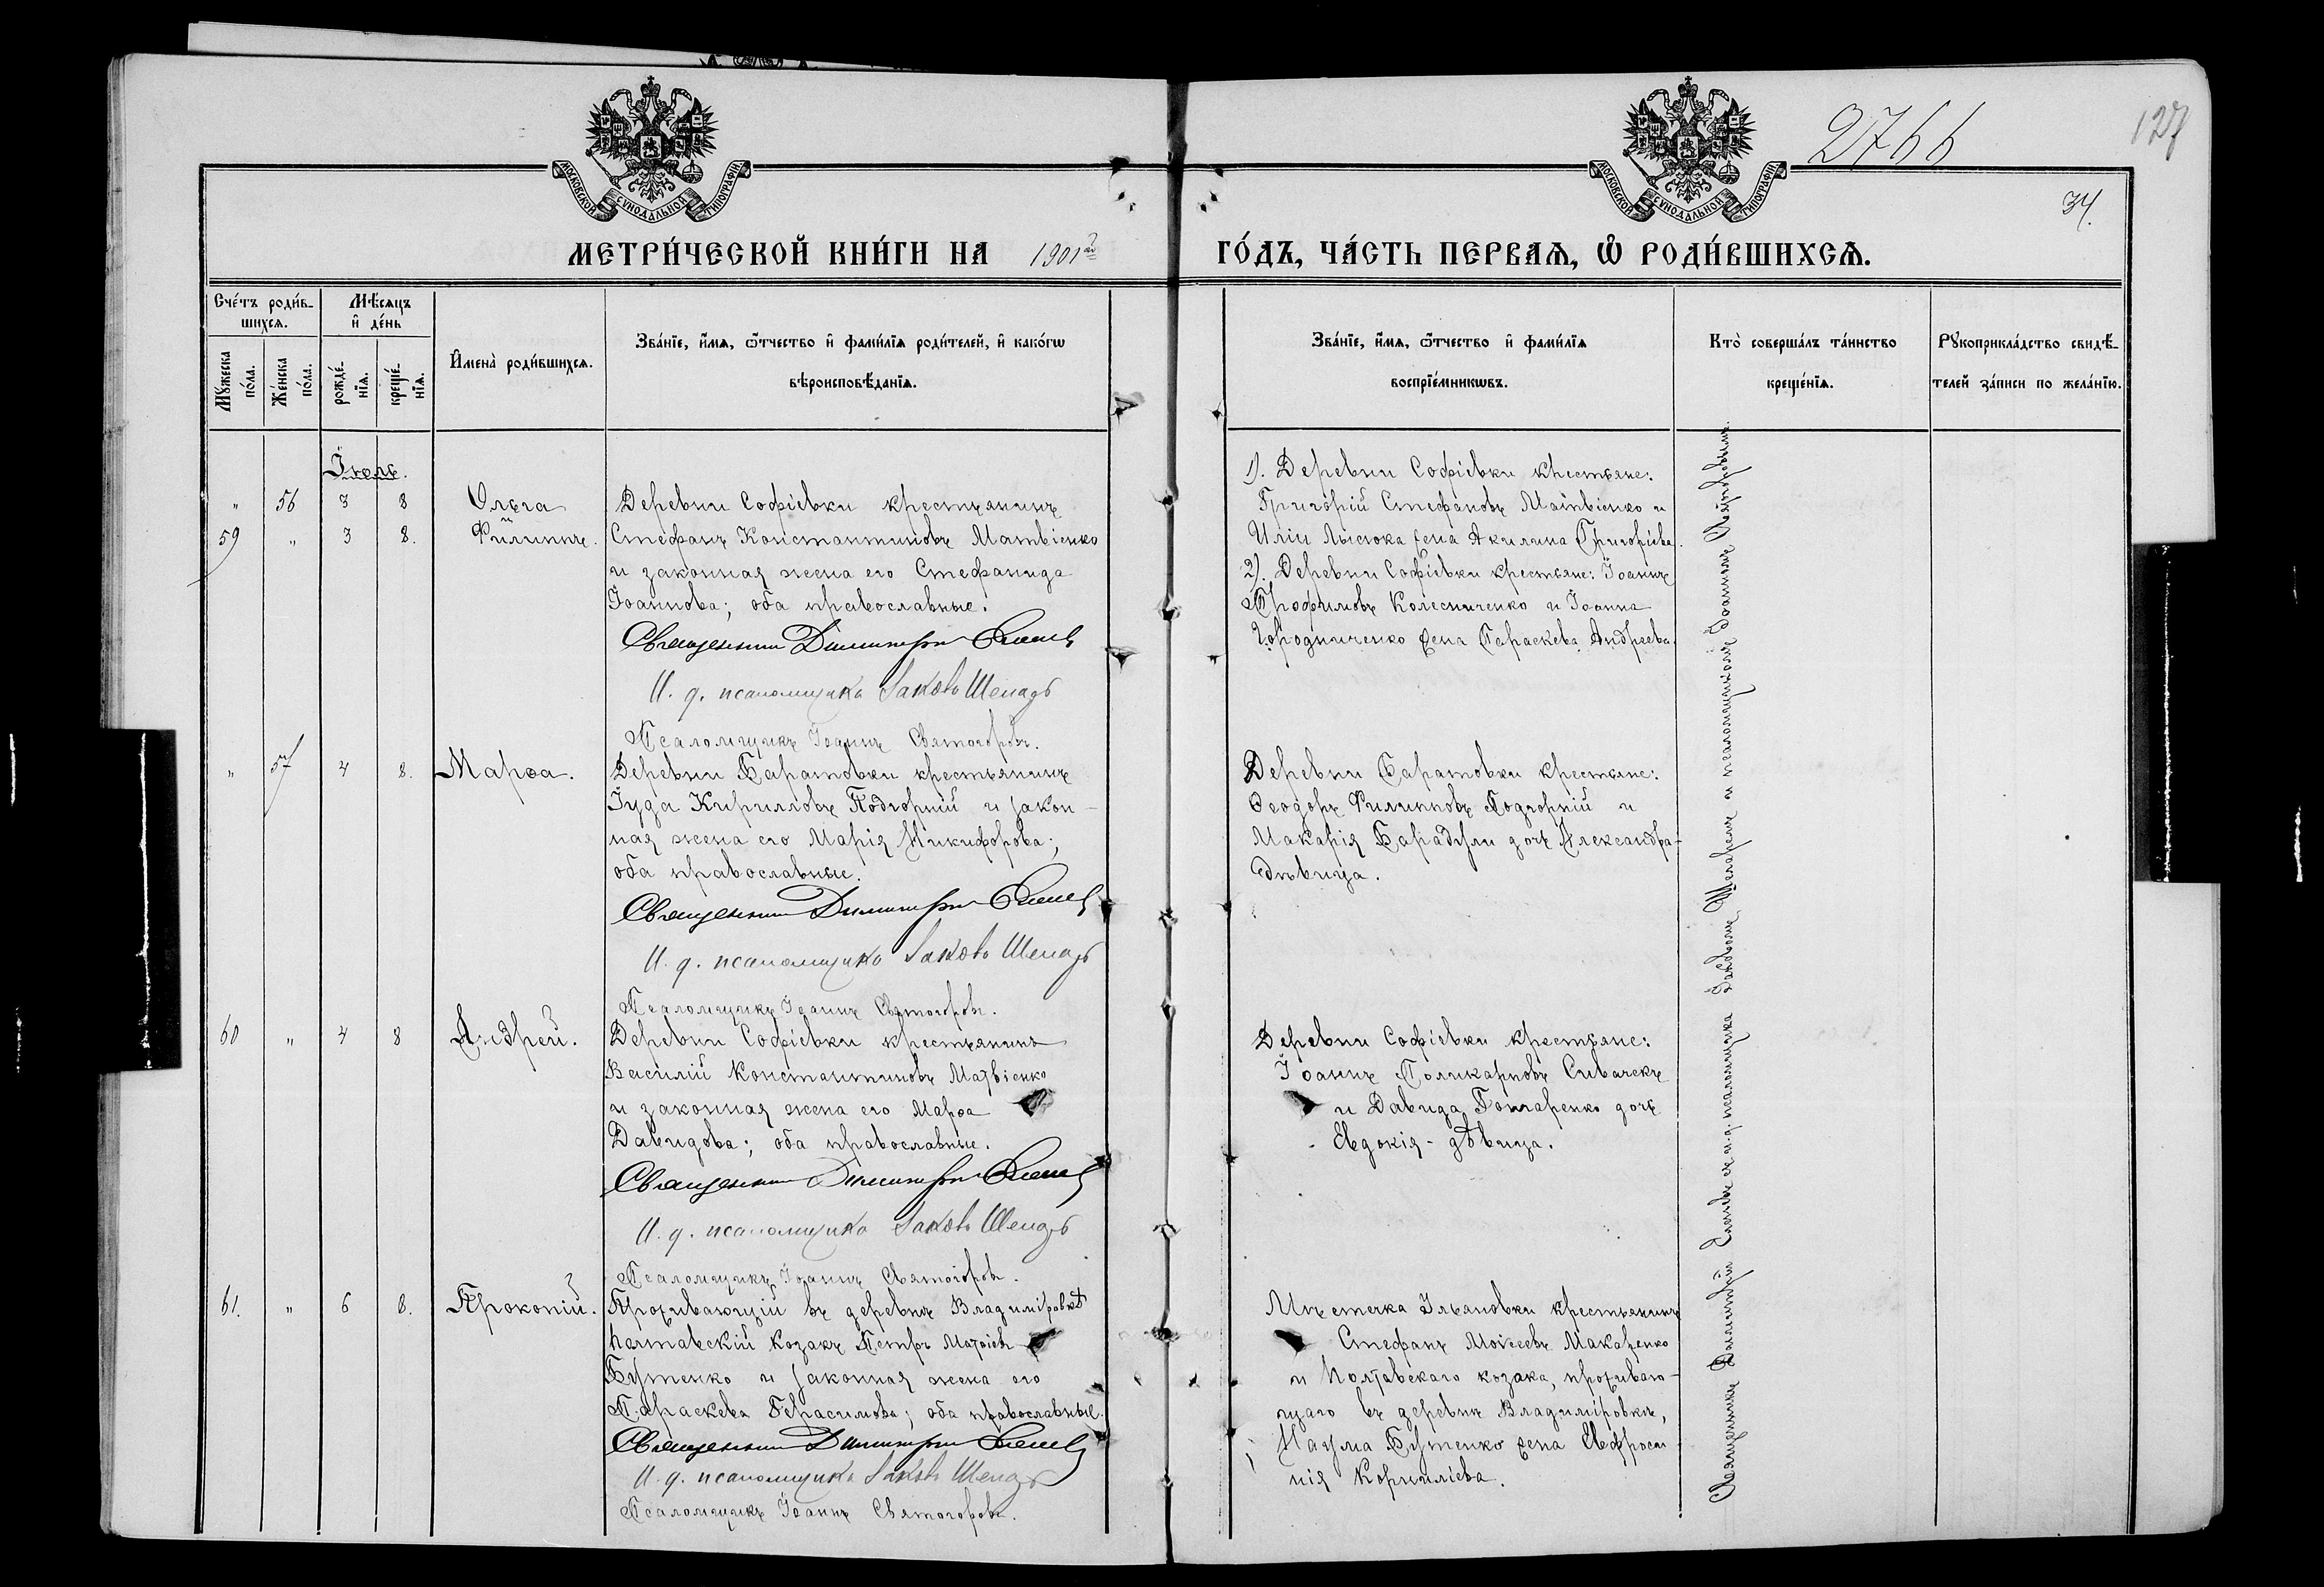 2766
127
34.
МОСКОВСКОЙ СѴНОДАЛЬНОЙ ТИПОГРАФІИ
МОСКОВСКОЙ СѴНОДАЛЬНОЙ ТИПОГРАФІИ
МЕТРИ́ЧЕСКОЙ КНИ́ГИ НА 1901 ГО́ДЪ, ЧА́СТЬ ПЕРВАѦ, Ѿ РОДИ́ВШИХСѦ.
Сче́тъ роди́в-
шихсѧ.
Мѣ́сѧцъ
и҆ де́нь
Мꙋжеска
по́ла.
Же́нска
по́ла.
рожде́-
нїѧ.
креще́-
нїѧ.
И҆мена̀ роди́вшихсѧ.
Зва́нїе, и҆́мѧ, ѻ҆́тчество и҆ фами́лїѧ роди́телей, и҆ како́гѡ
вѣроисповѣ́данїѧ.
Зва́нїе, и҆́мѧ, ѻ҆́тчество и҆ фами́лїѧ
воспрїе́мникѡвъ.
Кто̀ соверша́лъ та́инство
креще́нїѧ.
Рꙋкоприкла́дство свидѣ́-
телей за́писи по жела́нїю.
Іюль.
" 56 3 8 Ольга
59 " 3 8. Филиппъ.
Деревни Софіевки крестьянинъ
Стефанъ Константиновъ Матвіенко
и законная жена его Стефанида
Іоаннова; оба православные.
Священник Димитри
И. д. псаломщика Іаковъ Шепадъ
Псаломщикъ Іоаннъ Святогоровъ.
1). Деревни Софіевки крестьяне:
Григорій Стефановъ Матвіенко и
Иліи Лысюка жена Акилина Григоріева.
2). Деревни Софіевки крестьяне: Іоаннъ
Трофимовъ Колесниченко и Іоанна
Городниченко жена Параскева Андреева.
" 57 4 8. Марѳа.
Деревни Баратовки крестьянинъ
Іуда Кирилловъ Подгорній и закон-
ная жена его Марія Никифорова;
оба православные.
Священник Димитри
И. д. псаломщика Іаковъ Шепадъ
Псаломщикъ Іоаннъ Святогоровъ.
Деревни Баратовки крестьяне:
Ѳеодоръ Филипповъ Подгорній и
Макарія Барадули дочь Александра-
дѣвица.
60 " 4 8 Андрей.
Деревни Софіевки крестьянинъ
Василій Константиновъ Матвіенко
и законная жена его Марѳа
Давидова; оба православные.
Священник Димитри
И. д. псаломщика Іаковъ Шепадъ
Псаломщикъ Іоаннъ Святогоровъ.
Деревни Софіевки крестьяне:
Іоаннъ Поликарповъ Сивачекъ
и Давида Гончаренко дочь
Евдокія - дѣвица.
61. " 6 8. Прокопій.
Проживающій въ деревнѣ Владиміровкѣ
полтавскій козакъ Петръ Матѳіевъ
Бутенко и законная жена его
Параскева Герасимова; оба православные.
Священник Димитри
И. д. псаломщика Іаковъ Шепадъ
Псаломщикъ Іоаннъ Святогоровъ.
Мѣстечка Ульановки крестьянинъ
Стефанъ Моѵсеевъ Макаренко
и полтавскаго козака, проживаю-
щаго въ деревнѣ Владиміровкѣ,
Наума Бутенко жена Евфроси-
нія Корниліева.
Священникъ Димитрій съ и. д. псаломщика Іаковомъ и псаломщикомъ Іоанномъ